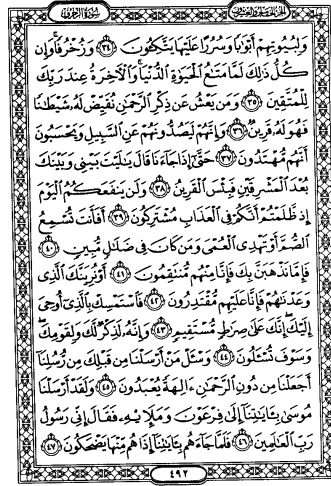 الجزء الخامس والعشرون
سُورَةُ الزُّخْرُفِ
وَلِبُيُوتِهِمْ أَبْوَٰبًا وَسُرُرًا عَلَيْهَا يَتَّكِـُٔونَ ٣٤ وَزُخْرُفًا ۚ وَإِن
كُلُّ ذَٰلِكَ لَمَّا مَتَٰعُ ٱلْحَيَوٰةِ ٱلدُّنْيَا ۚ وَٱلْأَخِرَةُ عِندَ رَبِّكَ
لِلْمُتَّقِينَ ٣٥ وَمَن يَعْشُ عَن ذِكْرِ ٱلرَّحْمَٰنِ نُقَيِّضْ لَهُۥ شَيْطَٰنًا
فَهُوَ لَهُۥ قَرِينٌ ٣٦ وَإِنَّهُمْ لَيَصُدُّونَهُمْ عَنِ ٱلسَّبِيلِ وَيَحْسَبُونَ
أَنَّهُم مُّهْتَدُونَ ٣٧ حَتَّىٰٓ إِذَا جَآءَنَا قَالَ يَٰلَيْتَ بَيْنِى وَبَيْنَكَ
بُعْدَ ٱلْمَشْرِقَيْنِ فَبِئْسَ ٱلْقَرِينُ ٣٨ وَلَن يَنفَعَكُمُ ٱلْيَوْمَ
إِذ ظَّلَمْتُمْ أَنَّكُمْ فِى ٱلْعَذَابِ مُشْتَرِكُونَ ٣٩ أَفَأَنتَ تُسْمِعُ
ٱلصُّمَّ أَوْ تَهْدِى ٱلْعُمْىَ وَمَن كَانَ فِى ضَلَٰلٍ مُّبِينٍ ٤٠
فَإِمَّا نَذْهَبَنَّ بِكَ فَإِنَّا مِنْهُم مُّنتَقِمُونَ ٤١ أَوْ نُرِيَنَّكَ ٱلَّذِى
وَعَدْنَٰهُمْ فَإِنَّا عَلَيْهِم مُّقْتَدِرُونَ ٤٢ فَٱسْتَمْسِكْ بِٱلَّذِىٓ أُوحِىَ
إِلَيْكَ ۖ إِنَّكَ عَلَىٰ صِرَٰطٍ مُّسْتَقِيمٍ ٤٣ وَإِنَّهُۥ لَذِكْرٌ لَّكَ وَلِقَوْمِكَ ۖ
وَسَوْفَ تُسْـَٔلُونَ ٤٤ وَسْـَٔلْ مَنْ أَرْسَلْنَا مِن قَبْلِكَ مِن رُّسُلِنَآ
أَجَعَلْنَا مِن دُونِ ٱلرَّحْمَٰنِ ءَالِهَةً يُعْبَدُونَ ٤٥ وَلَقَدْ أَرْسَلْنَا
مُوسَىٰ بِـَٔايَٰتِنَآ إِلَىٰ فِرْعَوْنَ وَمَلَإِي۟هِۦ فَقَالَ إِنِّى رَسُولُ
رَبِّ ٱلْعَٰلَمِينَ ٤٦ فَلَمَّا جَآءَهُم بِـَٔايَٰتِنَآ إِذَا هُم مِّنْهَا يَضْحَكُونَ ٤٧
٤٩٢